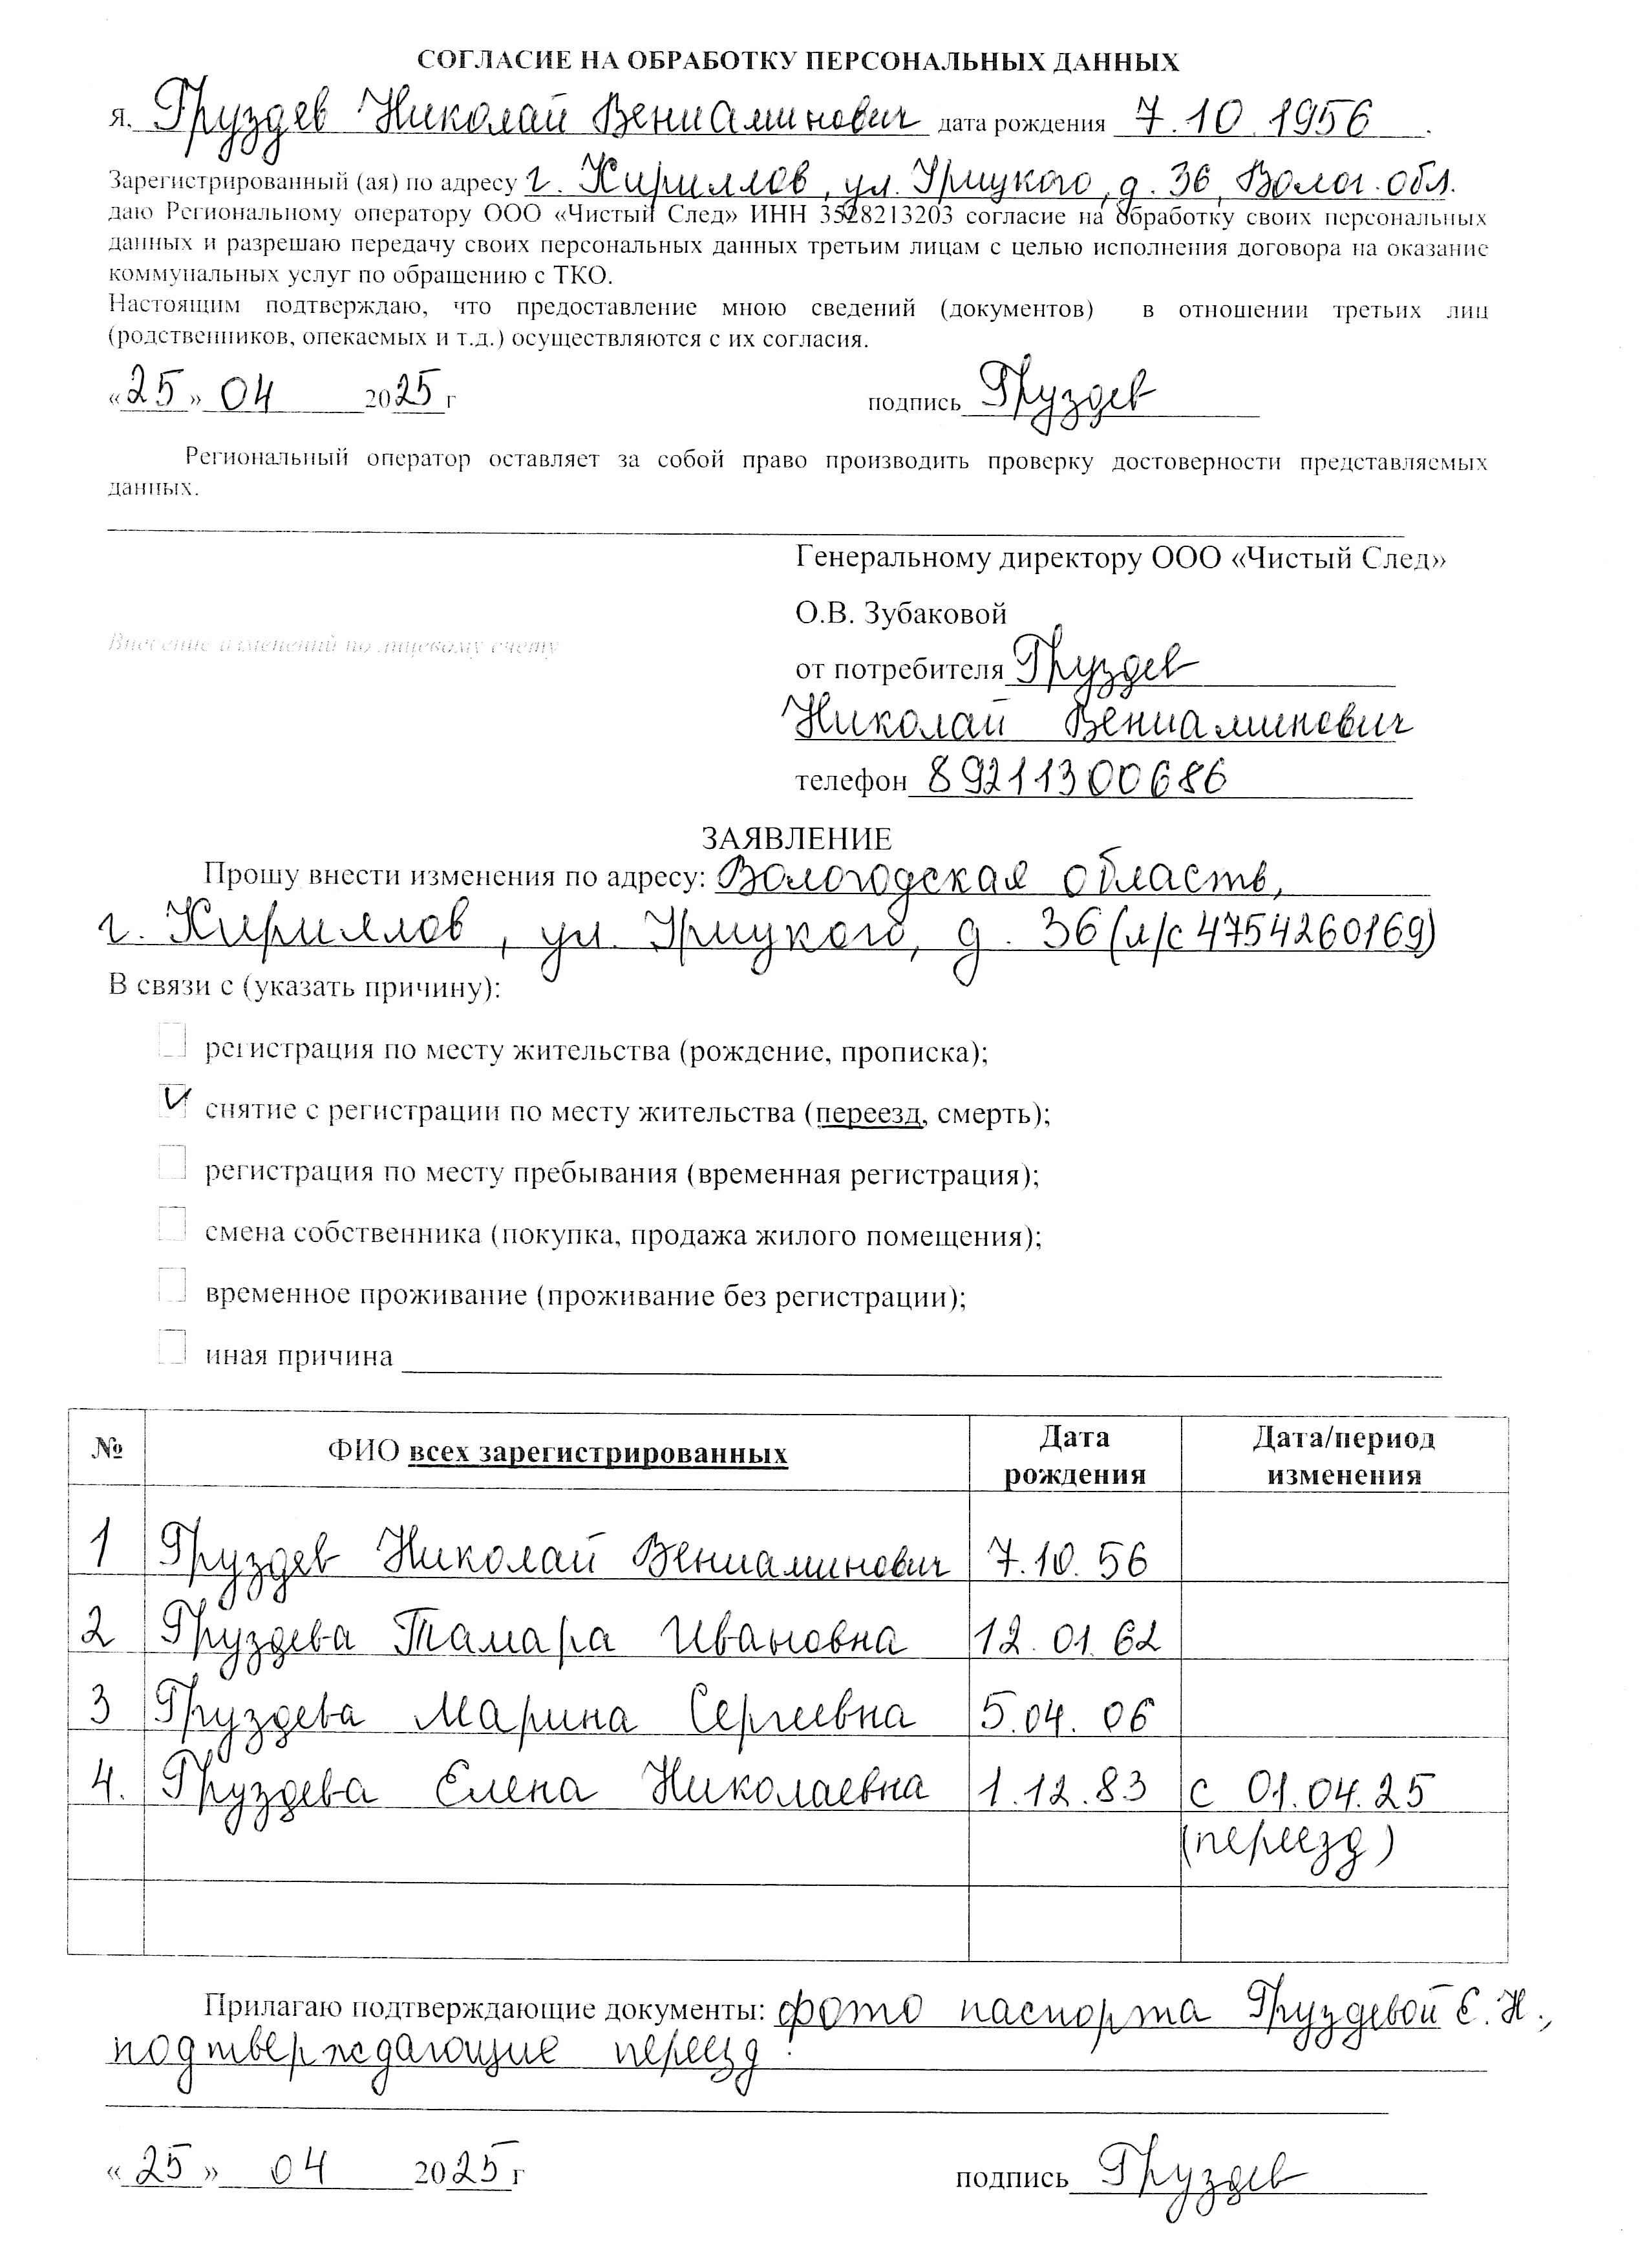 СОГЛАСИЕ НА ОБРАБОТКУ ПЕРСОНАЛЬНЫХ ДАННЫХ
я, Груздев Николай Вениаминович дата рождения 7.10.1956.
Зарегистрированный (ая) по адресу г. Кириллов, ул. Урицкого, д. 36, Волог. обл.
даю Региональному оператору ООО «Чистый След» ИНН 3528213203 согласие на обработку своих персональных
данных и разрешаю передачу своих персональных данных третьим лицам с целью исполнения договора на оказание
коммунальных услуг по обращению с ТКО.
Настоящим подтверждаю, что предоставление мною сведений (документов) в отношении третьих лиц
(родственников, опекаемых и т.д.) осуществляются с их согласия.
«25» 04 2025 г подпись Груздев
Региональный оператор оставляет за собой право производить проверку достоверности представляемых
данных.
Генеральному директору ООО «Чистый След»
О.В. Зубаковой
Внесение изменений по лицевому счету
от потребителя Груздев
Николай Вениаминович
телефон 89211300686
ЗАЯВЛЕНИЕ
Прошу внести изменения по адресу: Вологодская область,
г. Кириллов, ул. Урицкого, д. 36 (л/с 4754260169)
В связи с (указать причину):
регистрация по месту жительства (рождение, прописка);
V снятие с регистрации по месту жительства (переезд, смерть);
регистрация по месту пребывания (временная регистрация);
смена собственника (покупка, продажа жилого помещения);
временное проживание (проживание без регистрации);
иная причина
№ ФИО всех зарегистрированных Дата рождения Дата/период изменения
1 Груздев Николай Вениаминович 7.10.56
2 Груздева Тамара Ивановна 12.01.62
3 Груздева Марина Сергеевна 5.04.06
4. Груздева Елена Николаевна 1.12.83 с 01.04.25
(переезд)
Прилагаю подтверждающие документы: фото паспорта Груздевой Е. Н.,
подтверждающие переезд.
«25» 04 2025 г подпись Груздев